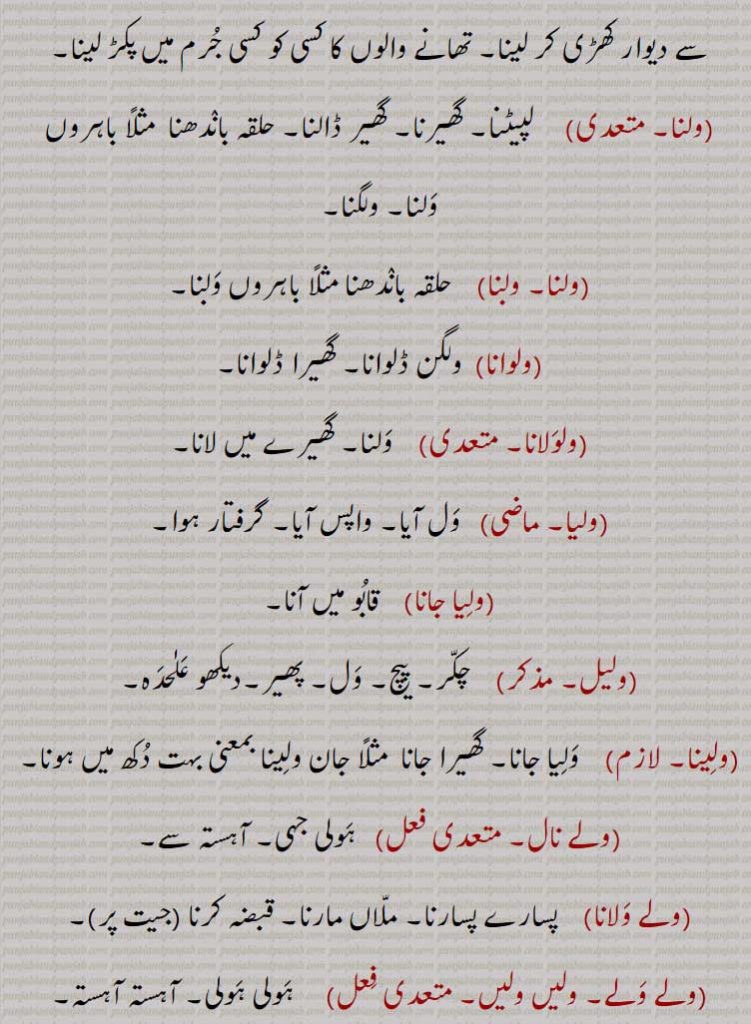 سے دیوار کھڑی کر لینا۔ تھانے والوں کا کسی کو کسی جُرم میں پکڑ لینا۔
(ولنا۔ متعدی) لپیٹنا۔ گھیرنا۔ گھیر ڈالنا۔ حلقہ باندھنا مثلاً باہروں
وَلنا۔ ولگنا۔
(ولنا۔ ولبنا) حلقہ باندھنا مثلاً باہروں وَلبنا۔
(ولوانا) ولگن ڈلوانا۔ گھیرا ڈلوانا۔
(ولوَلانا۔ متعدی) وَلنا۔ گھیرے میں لانا۔
(ولیا۔ ماضی) وَل آیا۔ واپس آیا۔ گرفتار ہوا۔
(ولِیا جانا) قابُو میں آنا۔
(ولیل۔ مذکر) چکّر۔ پیچ۔ وَل۔ پھیر۔ دیکھو عَلٰحدَہ۔
(ولِینا۔ لازم) وَلِیا جانا۔ گھیرا جانا مثلاً جان ولِینا بمعنی بہت دُکھ میں ہونا۔
(ولے نال۔ متعدی فعل) ہَولی جہی۔ آہستہ سے۔
(ولے وَلانا) پسارے پسارنا۔ ملّاں مارنا۔ قبضہ کرنا (جیت پر)۔
(ولے وَلے۔ ولیں ولیں۔ متعدی فِعل) ہَولی ہَولی۔ آہستہ آہستہ۔